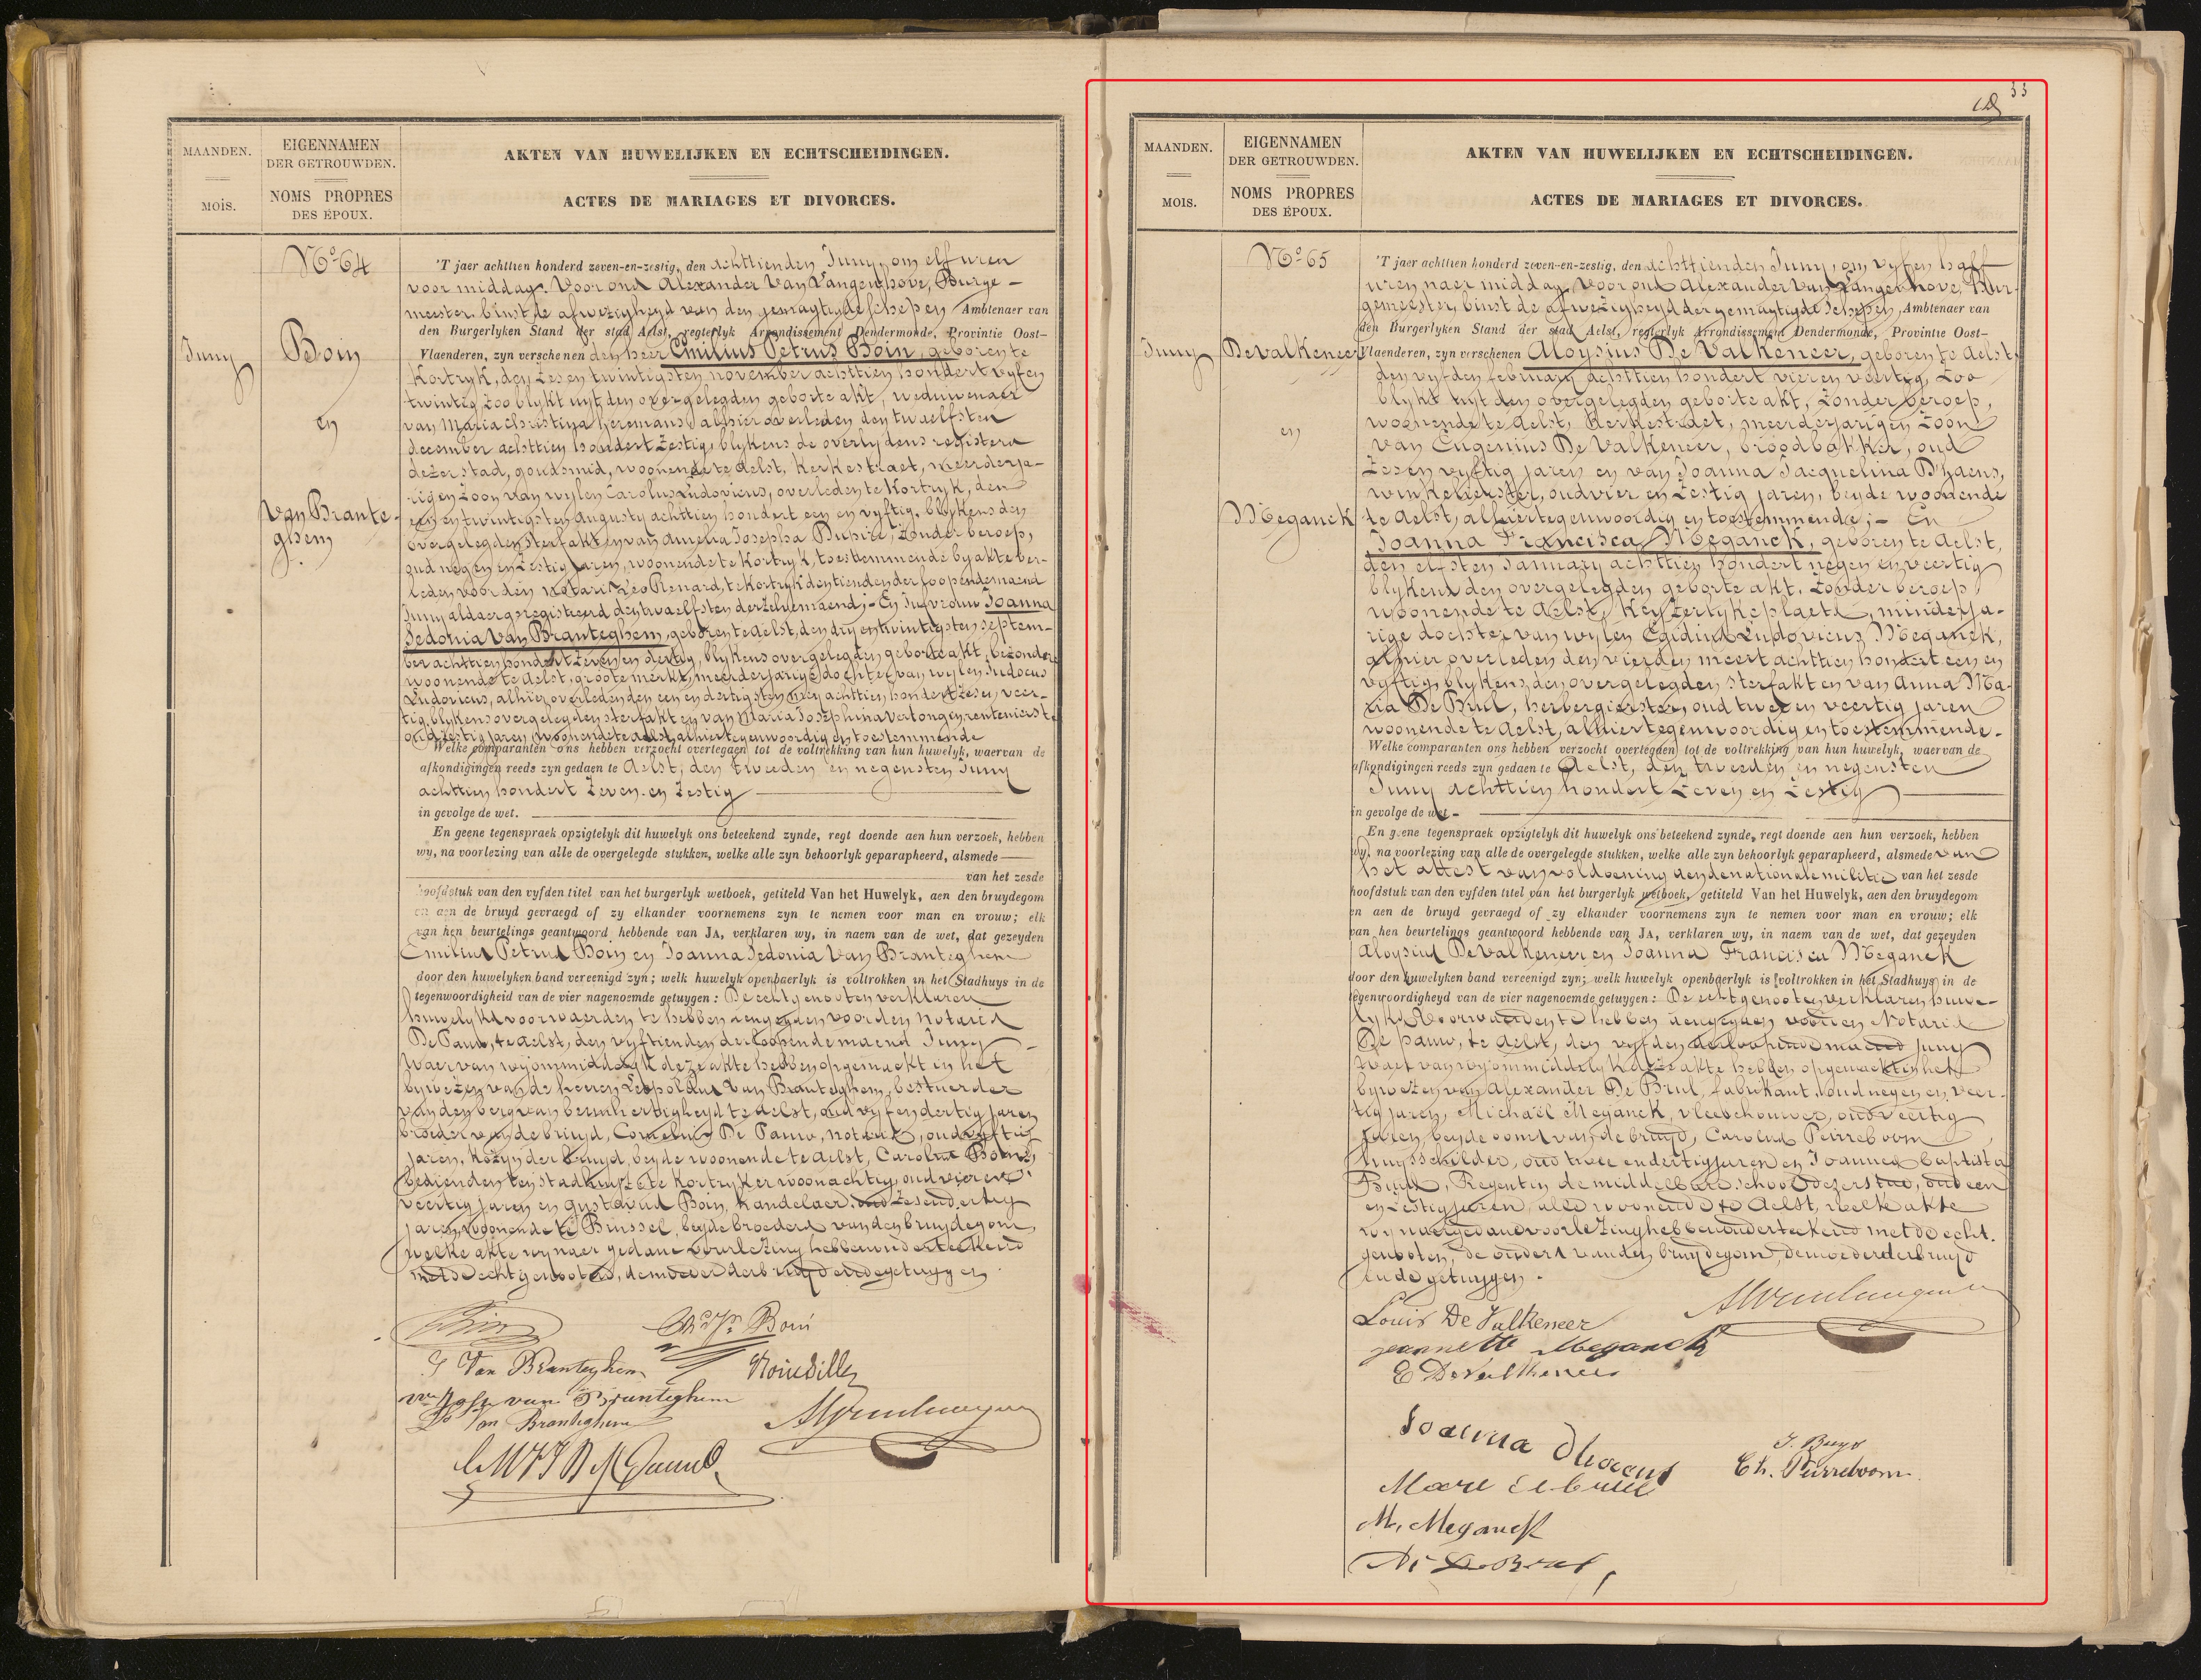 MAANDEN.
MOIS.
EIGENNAMEN
DER GETROUWDEN.
NOMS PROPRES
DES ÉPOUX.
AKTEN VAN HUWELIJKEN EN ECHTSCHEIDINGEN.
ACTES DE MARIAGES ET DIVORCES.
Juny
No 64
Boin
en
Van Brante-
ghem
'T jaer achttien honderd zeven-en-zestig, den achttienden Juny, om elf uren
voor middag. Voor ons Alexander Van Langenhove, Burge-
meester, binst de afwezigheyd van den gemagtigde schepen, Ambtenaer van
den Burgerlyken Stand der stad Aelst, regterlyk Arrondissement Dendermonde, Provintie Oost-
Vlaenderen, zyn verschenen den heer Emilius Petrus Boin, geboren te
Kortryk, den zes en twintigsten november achttien hondert vyf en
twintig, zoo blykt uyt den overgelegden geborte akt, weduwenaer
van Maria Christina Heremans alhier overleden den twaelfsten
december achttien hondert zestig, blykens de overlydens registers
dezer stad, goudsmid, woonende te Aelst, Kerkestraet, meerderja-
rigen zoon van wylen Carolus Ludovicus, overleden te Kortryk, den
een en twintigsten Augusty achttien hondert een en vyftig, blykens den
overgelegden sterfakt en van Amelia Josepha, zonder beroep,
oud negen en zestig jaren, woonende te Kortryk, toestemmende by akte ver-
leden voor den notaris Leo Renard, te Kortryk den tienden der loopende maend
Juny aldaer geregistreerd den twaelfsten derzelve maend; - En Jufvrouw Joanna
Sedonia Van Branteghem, geboren te Aelst, den dry en twintigsten septem-
ber achttien hondert zeven en dertig, blykens overgelegden geborte akt, bezonder
woonende te Aelst, groote merkt, meerderjarige dochter van wylen Judocus
Ludovicus, alhier overleden den een en dertigsten mey achttien hondert zes en veer-
tig, blykens overgelegden sterfakt en van Maria Josephina Vertongen, rentenierster
oud zestig jaren, woonende te Aelst, alhier tegenwoordig en toestemmende
Welke comparanten ons hebben verzocht overtegaen tot de voltrekking van hun huwelyk, waervan de
afkondigingen reeds zyn gedaen te Aelst, den tweeden en negensten Juny
achttien hondert zeven en zestig
in gevolge de wet.
En geene tegenspraek opzigtelyk dit huwelyk ons beteekend zynde, regt doende aen hun verzoek, hebben
wy, na voorlezing van alle de overgelegde stukken, welke alle zyn behoorlyk geparapheerd, alsmede
van het zesde
hoofdstuk van den vyfden titel van het burgerlyk wetboek, getiteld Van het Huwelyk, aen den bruydegom
en aen de bruyd gevraegd of zy elkander voornemens zyn te nemen voor man en vrouw; elk
van hen beurtelings geantwoord hebbende van JA, verklaren wy, in naem van de wet, dat gezeyden
Emilius Petrus Boin en Joanna Sedonia Van Branteghem
door den huwelyken band vereenigd zyn; welk huwelyk openbaerlyk is voltrokken in het Stadhuys in de
tegenwoordigheid van de vier nagenoemde getuygen: De echtgenooten verklaren
huwelyks voorwaerden te hebben aengegaen voor den notaris
De Pauw, te Aelst, den vyftienden der loopende maend Juny
Waer van wy ommiddelyk deze akte hebben opgemaekt in het
bywezen van de heeren Leopoldus Van Branteghem, bestuerder
van den berg van bermhertigheyd te Aelst, oud vyf en dertig jaren
broeder van de bruyd, Cornelius De Pauw, notaris, oud vyftig
jaren, kozyn der bruyd, beyde woonende te Aelst, Carolus Boin,
bedienden ten stadhuyze te Kortryk er woonachtig, oud vier en
veertig jaren en Gustavus Boin, handelaer, oud zes en dertig
jaren, woonende te Brussel, beyde broeders van den bruydegom,
welke akte wy naer gedane voorlezing hebben onderteekend
met de echtgenooten, de moeder der bruyd en de getuygen
J Van Branteghem
Boin
L. Van Branteghem
33
MAANDEN.
MOIS.
EIGENNAMEN
DER GETROUWDEN.
NOMS PROPRES
DES ÉPOUX.
AKTEN VAN HUWELIJKEN EN ECHTSCHEIDINGEN.
ACTES DE MARIAGES ET DIVORCES.
Juny
No 65
De Valkeneer
en
Meganck
'T jaer achttien honderd zeven-en-zestig, den achttienden Juny, om vyf en half
uren naer middag, voor ons Alexander Van Langenhove, Bur-
gemeester, binst de afwezigheyd der gemagtigde schepen, Ambtenaer van
den Burgerlyken Stand der stad Aelst, regterlyk Arrondissement Dendermonde, Provintie Oost-
Vlaenderen, zyn verschenen Aloysius De Valkeneer, geboren te Aelst,
den vyfden february achttien hondert vier en veertig, zoo
blykt uyt den overgelegden geborte akt, zonder beroep,
woonende te Aelst, Kerkestraet, meerderjarigen zoon
van Eugenius De Valkeneer, broodbakker, oud
zes en vyftig jaren en van Joanna Jacquelina D'haens,
winkelierster, oud vier en zestig jaren, beyde woonende
te Aelst, alhier tegenwoordig en toestemmende; - En
Joanna Francisca Meganck, geboren te Aelst,
den elfsten January achttien hondert negen en veertig
blykens den overgelegden geborte akt, zonder beroep,
woonende te Aelst, Keyzerlykeplaets, minderja-
rige dochter van wylen Egidius Ludovicus Meganck,
alhier overleden den vierden meert achttien hondert een en
vyftig, blykens den overgelegden sterfakt en van Anna Ma-
ria De BruL, herbergierster, oud twee en veertig jaren
woonende te Aelst, alhier tegenwoordig en toestemmende.
Welke comparanten ons hebben verzocht overtegaen tot de voltrekking van hun huwelyk, waervan de
afkondigingen reeds zyn gedaen te Aelst, den tweeden en negensten
Juny achttien hondert zeven en zestig
in gevolge de wet.
En geene tegenspraek opzigtelyk dit huwelyk ons beteekend zynde, regt doende aen hun verzoek, hebben
wy, na voorlezing van alle de overgelegde stukken, welke alle zyn behoorlyk geparapheerd, alsmede van
het attest van voldoening aen de nationale militie van het zesde
hoofdstuk van den vyfden titel van het burgerlyk wetboek, getiteld Van het Huwelyk, aen den bruydegom
en aen de bruyd gevraegd of zy elkander voornemens zyn te nemen voor man en vrouw; elk
van hen beurtelings geantwoord hebbende van JA, verklaren wy, in naem van de wet, dat gezeyden
Aloysius De Valkeneer en Joanna Francisca Meganck
door den huwelyken band vereenigd zyn; welk huwelyk openbaerlyk is voltrokken in het Stadhuys in de
tegenwoordigheyd van de vier nagenoemde getuygen: De echtgenooten verklaren huwe-
lyks voorwaerden te hebben aengegaen voor den Notaris
De Pauw, te Aelst, den vyfden der loopende maend Juny
Waer van wy ommiddelyk deze akte hebben opgemaekt in het
bywezen van Alexander De Brul, fabrikant, oud negen en veer-
tig jaren, Michaël Meganck, vleeschouwer, oud veertig
jaren, beyde ooms van de bruyd, Carolus Peirreboom
huysschilder, oud twee en dertig jaren en Joannes Baptista
Buys, Regent in de middelbare school dezer stad, oud een
en zestig jaren, alle woonende te Aelst, welke akte
wy naer gedane voorlezing hebben onderteekend met de echt-
genooten, de ouders van den bruydegom, de moeder der bruyd
en de getuygen.
Louis De Valkeneer
Jeannette Meganck
E De Valkeneer
Joanna Dhaens
J. Buys
Ch. Peirreboom
Marie De brul
M. Meganck